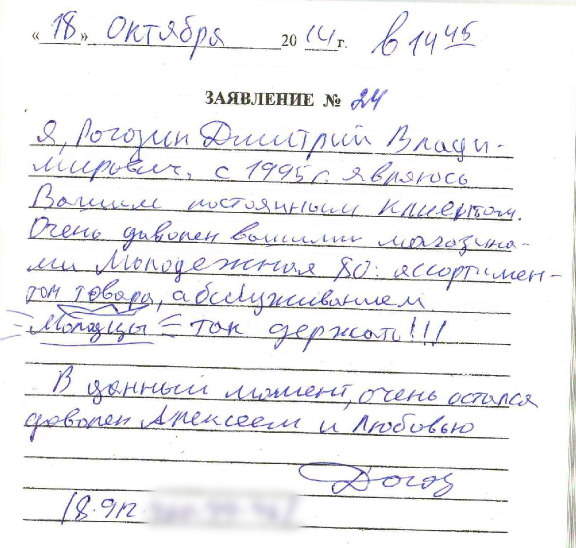 «18» Октября 2014 г. в 14 45
ЗАЯВЛЕНИЕ № 24
Я, Рогозин Дмитрий Влади-
мирович, с 1995 г. являюсь
Вашим постоянным клиентом.
Очень давопен вашими магазина-
ми Молодежная 80: ассортимен-
том товара, абслуживанием
Молодцы = так держать!!!
В данный момент, очень остался
довопен Алексеем и Любовью